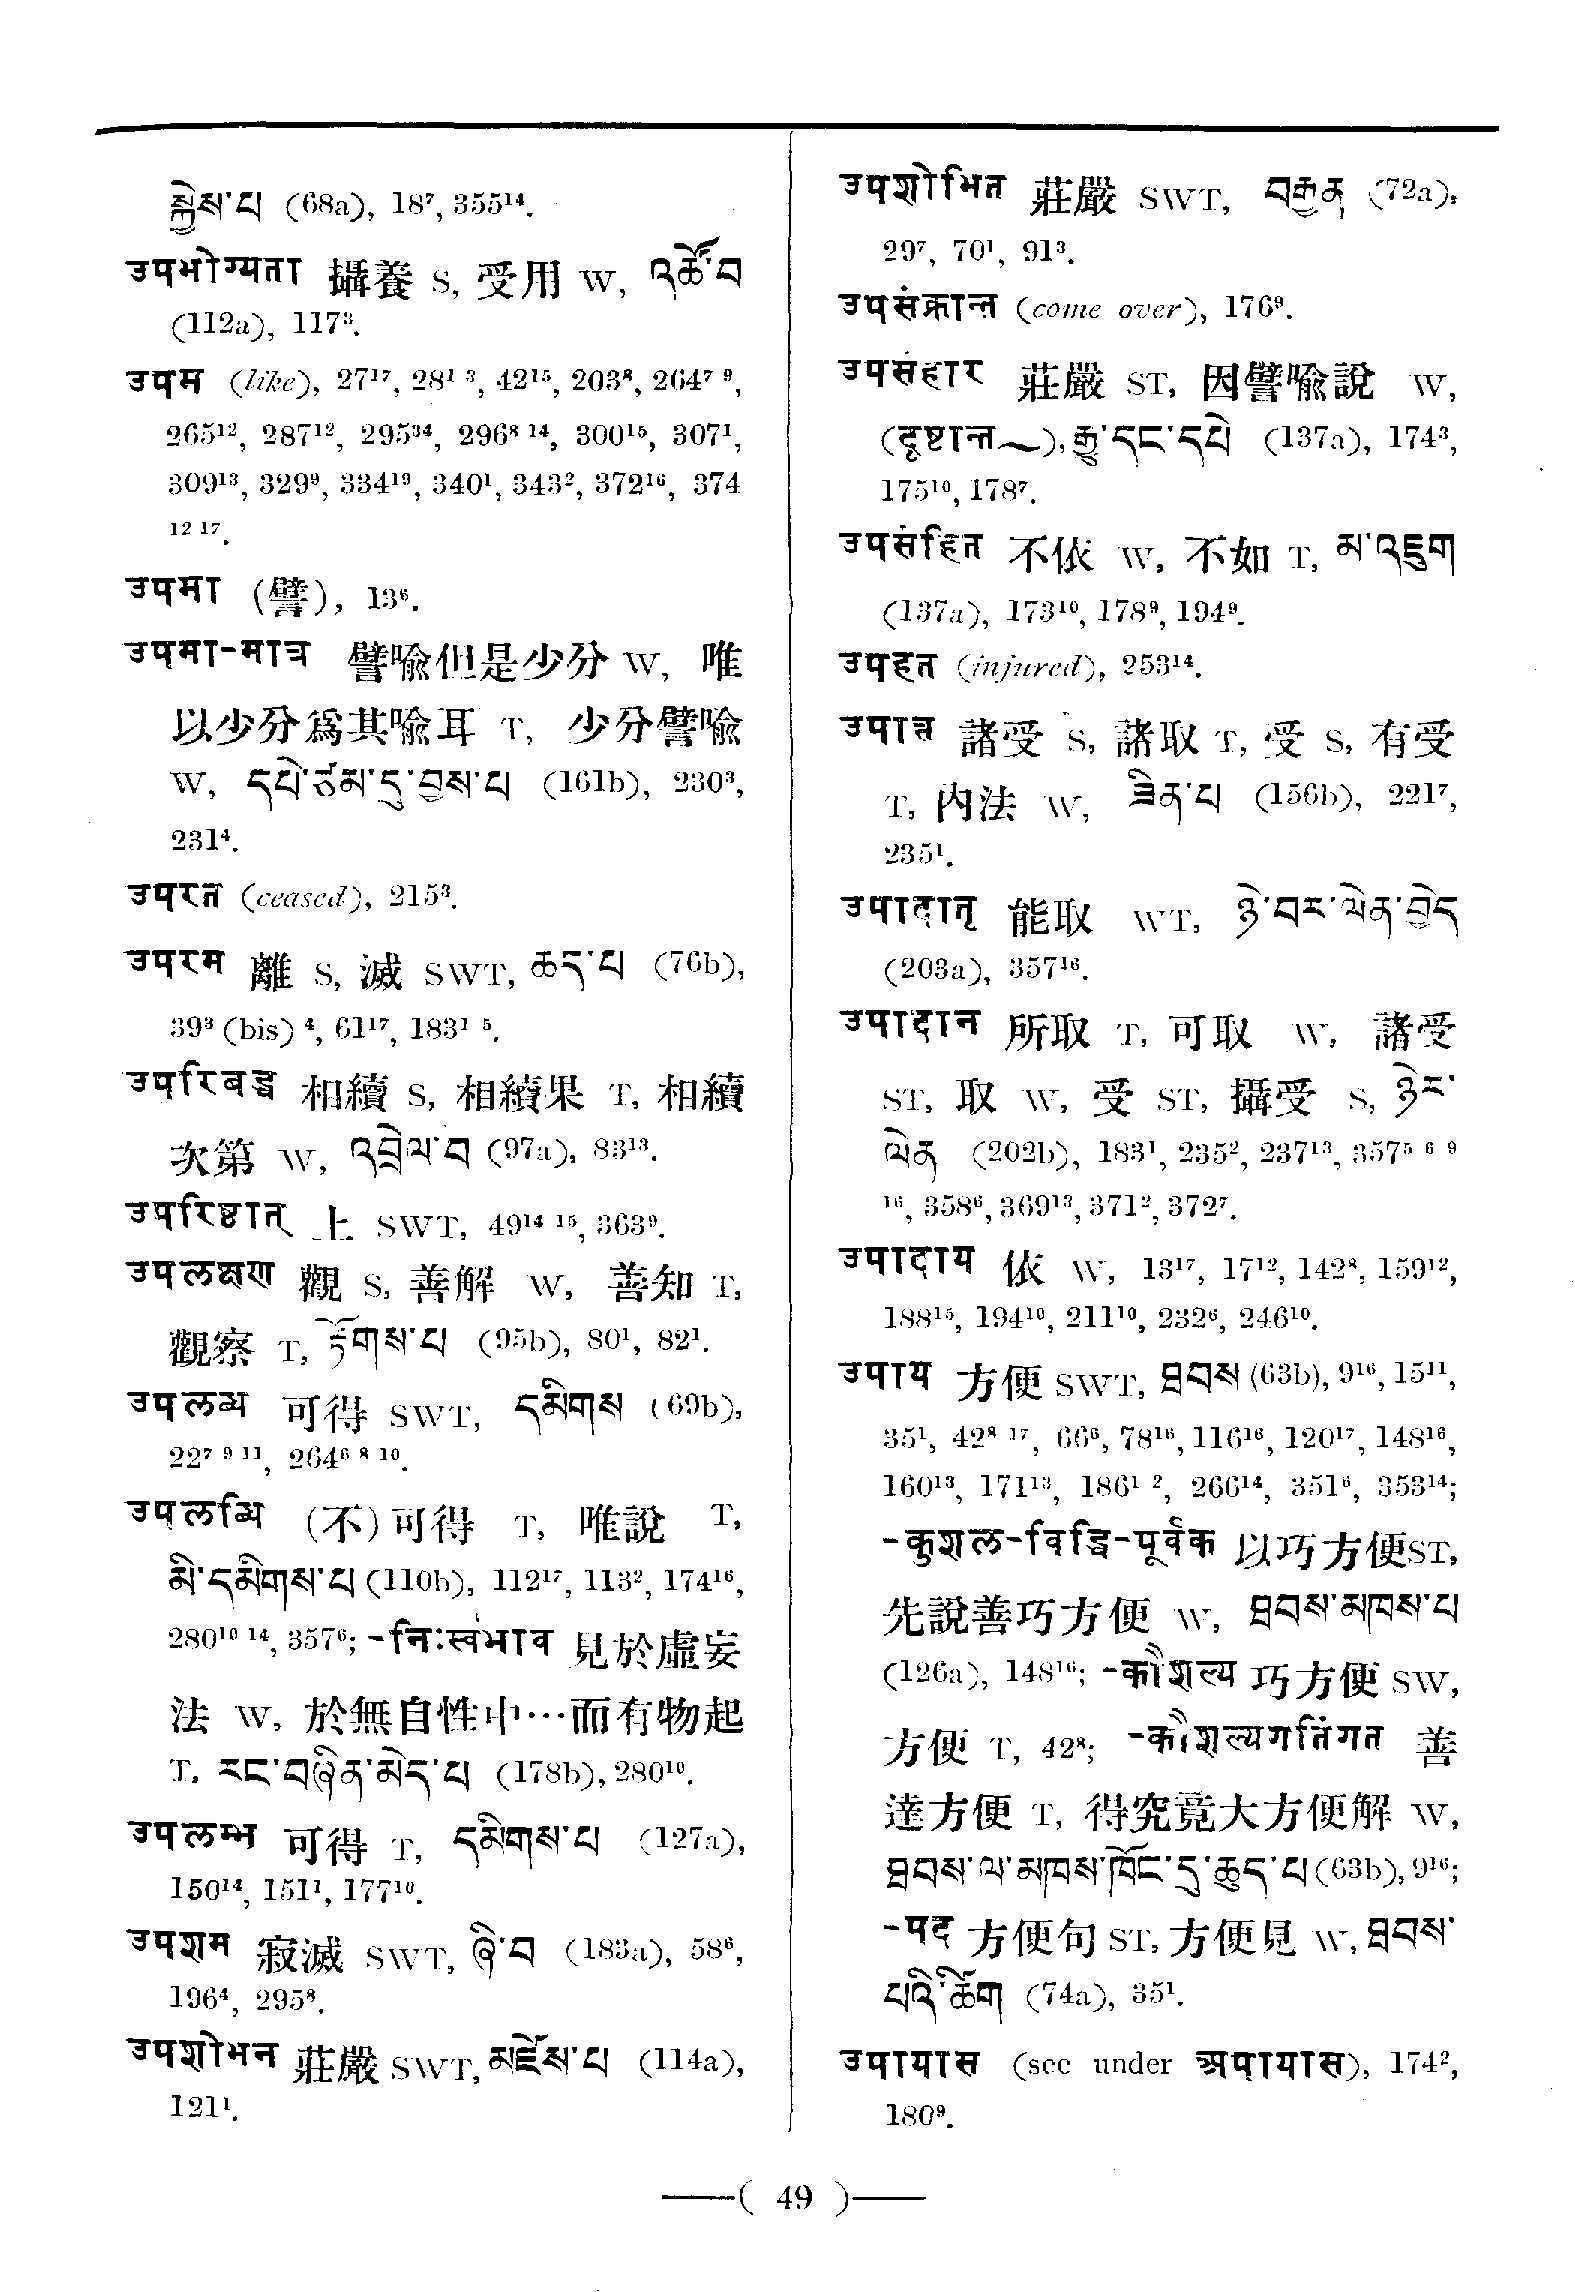 སྐྱེས་པ (68a), 18⁷, 355¹⁴.
उपभोग्यता 攝養 S, 受用 W, འཚོ་བ
(112a), 117³.
उपम (like), 27¹⁷, 28¹ ³, 42¹⁵, 203⁸, 264⁷ ⁹,
265¹², 287¹², 295³⁴, 296⁸ ¹⁴, 300¹⁵, 307¹,
309¹³, 329⁹, 334¹⁹, 340¹, 343², 372¹⁶, 374
¹² ¹⁷.
उपमा (譬), 13⁶.
उपमा-मात्र 譬喩但是少分 W, 唯
以少分爲其喩耳 T, 少分譬喩
W, དཔེ་ཙམ་དུ་བྱས་པ (161b), 230³,
231⁴.
उपरत (ceased), 215³.
उपरम 離 S, 滅 SWT, ཆད་པ (76b),
39³ (bis) ⁴, 61¹⁷, 183¹ ⁵.
उपरिबद्ध 相續 S, 相續果 T, 相續
次第 W, འབྲེལ་བ (97a), 83¹³.
उपरिष्ठात् 上 SWT, 49¹⁴ ¹⁵, 363⁹.
उपलक्षण 觀 S, 善解 W, 善知 T,
觀察 T, རྟོགས་པ (95b), 80¹, 82¹.
उपलब्ध 可得 SWT, དམིགས (69b),
22⁷ ⁹ ¹¹, 264⁶ ⁸ ¹⁰.
उपलब्धि (不)可得 T, 唯說 T,
མི་དམིགས་པ (110b), 112¹⁷, 113², 174¹⁶,
280¹⁰ ¹⁴, 357⁶; -निःस्वभाव 見於虛妄
法 W, 於無自性中…而有物起
T, རང་བཞིན་མེད་པ (178b), 280¹⁰.
उपलम्भ 可得 T, དམིགས་པ (127a),
150¹⁴, 151¹, 177¹⁰.
उपशम 寂滅 SWT, ཞི་བ (183a), 58⁶,
196⁴, 295⁸.
उपशोभन 莊嚴 SWT, མཛེས་པ (114a),
121¹.
उपशोभित 莊嚴 SWT, བརྒྱན (72a),
29⁷, 70¹, 91³.
उपसंक्रान्त (come over), 176⁹.
उपसंहार 莊嚴 ST, 因譬喩說 W,
(दृष्टान्त～), རྒྱུ་དང་དཔེ (137a), 174³,
175¹⁰, 178⁷.
उपसंहित 不依 W, 不如 T, མ་འཇུག
(137a), 173¹⁰, 178⁹, 194⁹.
उपहत (injured), 253¹⁴.
उपात्त 諸受 S, 諸取 T, 受 S, 有受
T, 內法 W, ཟིན་པ (156b), 221⁷,
235¹.
उपादातृ 能取 WT, ཉེ་བར་ལེན་བྱེད
(203a), 357¹⁶.
उपादान 所取 T, 可取 W, 諸受
ST, 取 W, 受 ST, 攝受 S, ཉེར་
ལེན (202b), 183¹, 235², 237¹³, 357⁵ ⁶ ⁹
¹⁶, 358⁶, 369¹³, 371², 372⁷.
उपादाय 依 W, 13¹⁷, 17¹², 142⁸, 159¹²,
188¹⁵, 194¹⁰, 211¹⁰, 232⁶, 246¹⁰.
उपाय 方便 SWT, ཐབས (63b), 9¹⁶, 15¹¹,
35¹, 42⁸ ¹⁷, 66⁶, 78¹⁶, 116¹⁶, 120¹⁷, 148¹⁶,
160¹³, 171¹³, 186¹ ², 266¹⁴, 351⁶, 353¹⁴;
-कुशल-विद्धि-पूर्वक 以巧方便ST,
先說善巧方便 W, ཐབས་མཁས་པ
(126a), 148¹⁶; -कौशल्य 巧方便 SW,
方便 T, 42⁸; -कौशल्यगतिंगत 善
達方便 T, 得究竟大方便解 W,
ཐབས་ལ་མཁས་ཁོང་དུ་ཆུད་པ (63b), 9¹⁶;
-पद 方便句 ST, 方便見 W, ཐབས་
པའི་ཚིག (74a), 35¹.
उपायास (see under अपायास), 174²,
180⁹.
( 49 )